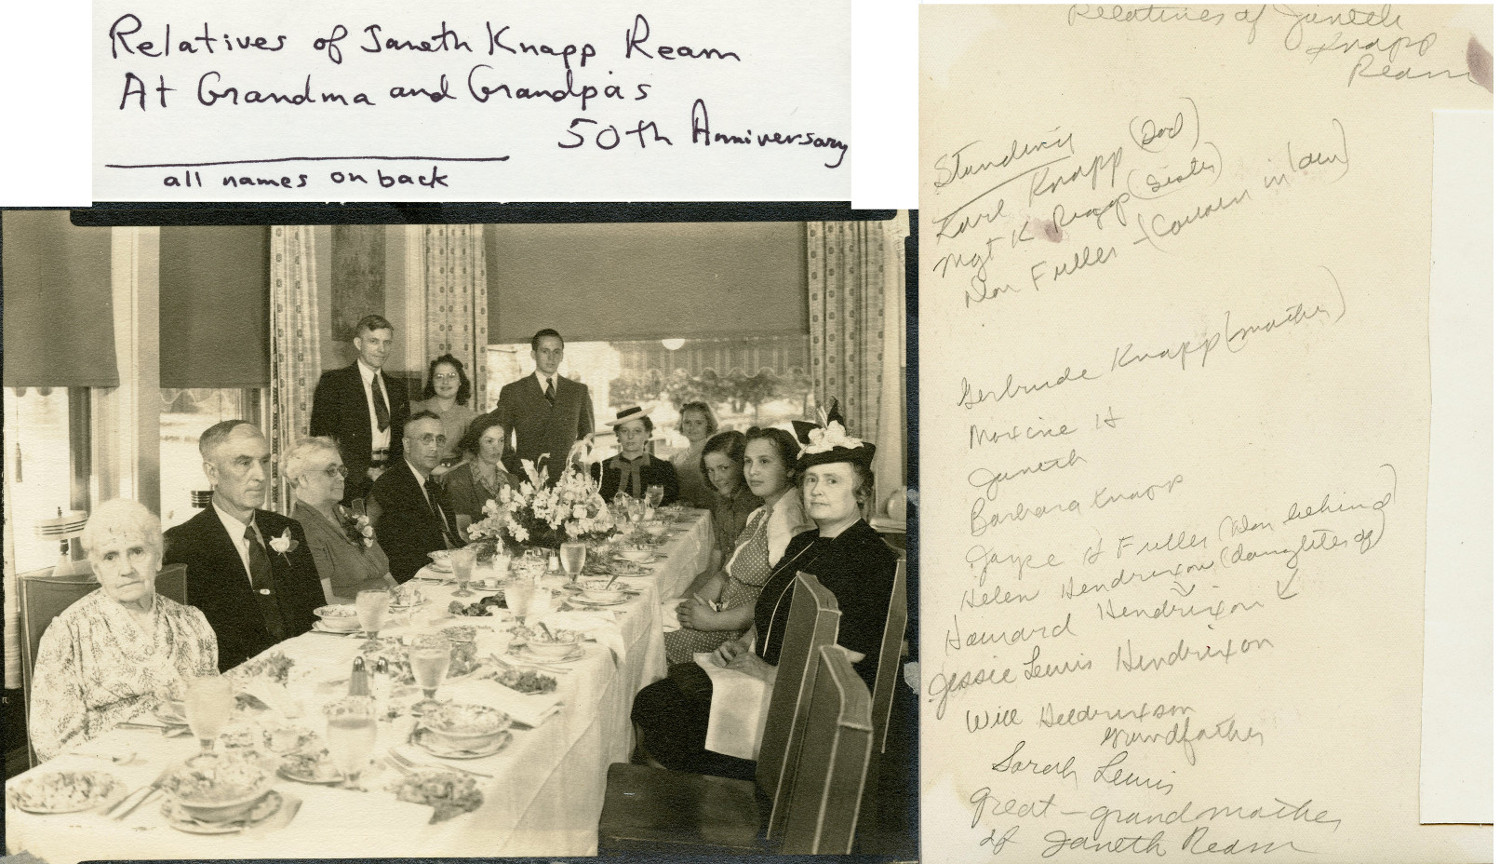 Relatives of Janeth Knapp Ream
At Grandma and Grandpa's
50th Anniversary
all names on back
Relatives of Janeth
Knapp
Ream
Standing
Karl Knapp (Dad)
Mgt K (Sister)
Don Fuller - (Cousin in law)
Gertrude Knapp (mother)
Maxine H
Janeth
Barbara Knapp
Joyce H Fuller (Don behind)
Helen Hendrixon (daughter of)
Howard Hendrixon
Jessie Lewis Hendrixon
Will
grandfather
Sarah Lewis
great-grandmother
of Janeth Ream